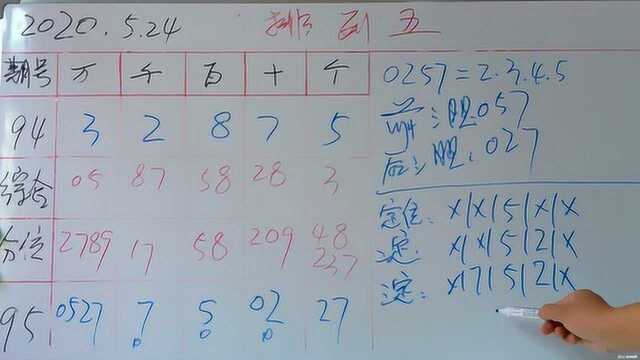 2020.5.24 排列五
期号 万 千 百 十 个
94 3 2 8 7 5
综合 05 87 58 28 3
分位 2789 17 58 209 48
237
95 0527 7 5 02 27
0 0 0
0257=2.3.4.5
前:胆:057
后:胆:027
定位:X|X|5|X|X
定:X|X|5|2|X
定:X|7|5|2|X